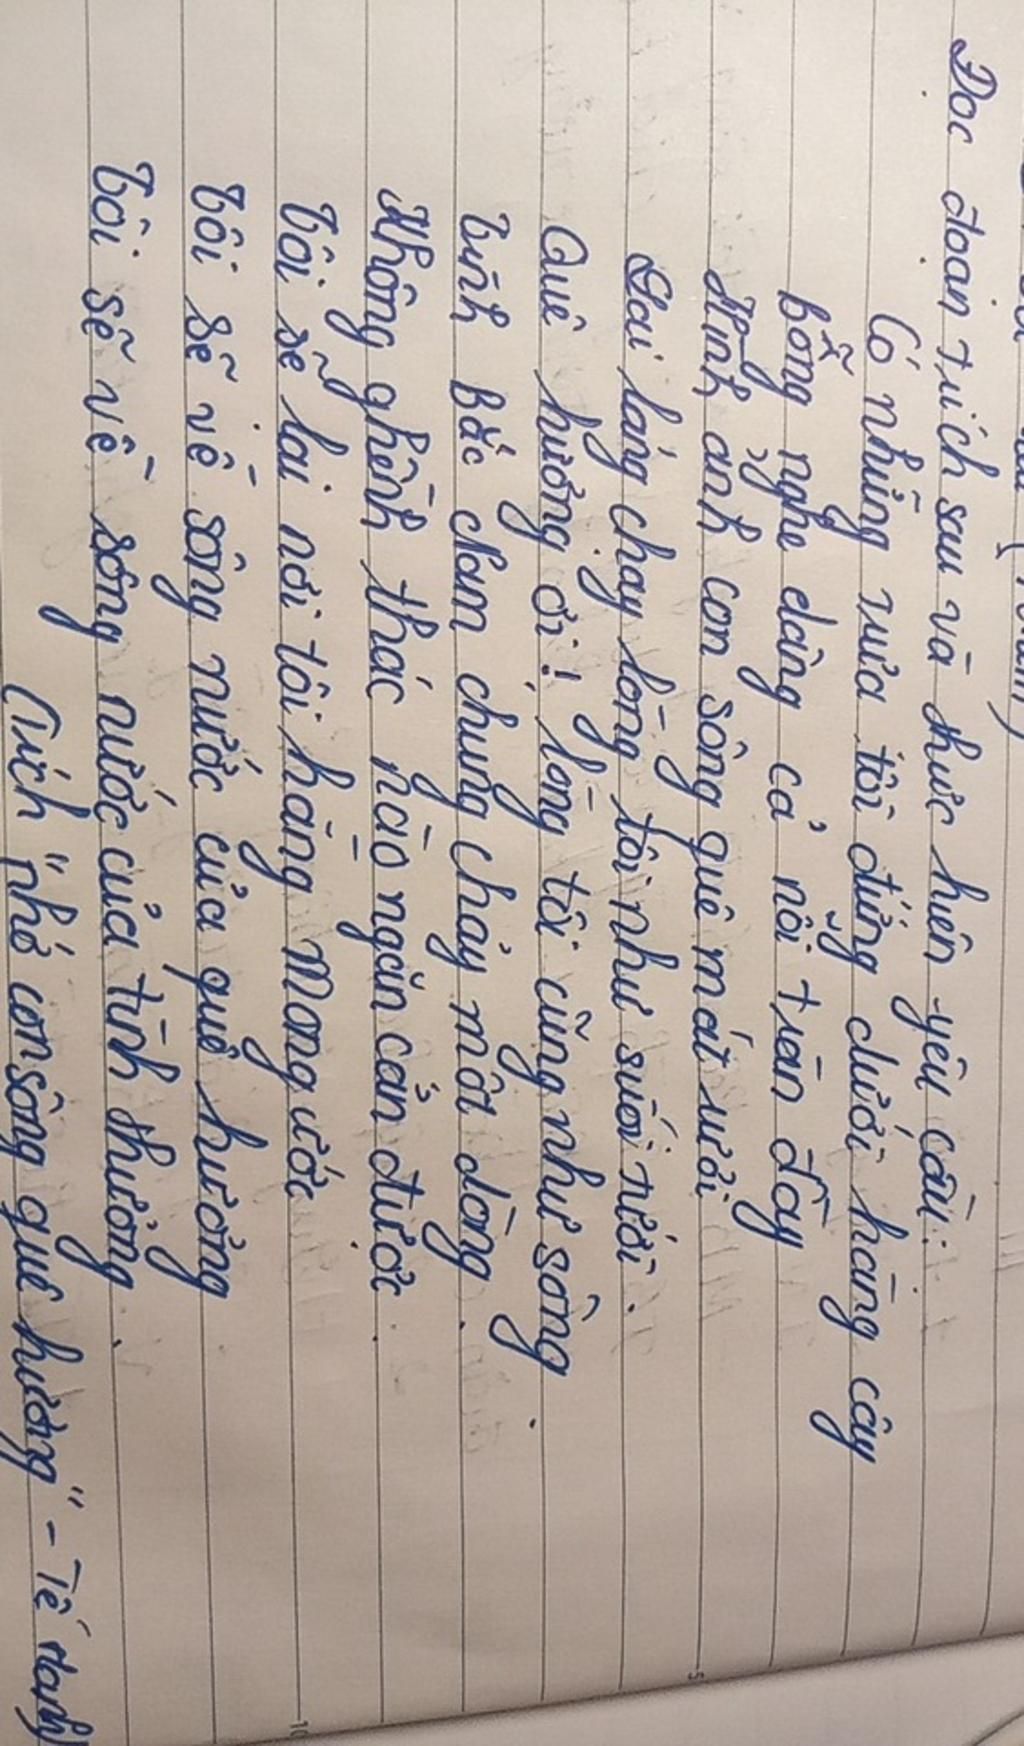 Đọc đoạn trích sau và thực hiện yêu cầu:
Có những trưa tôi đứng dưới hàng cây
Bỗng nghe dâng cả nỗi tràn đầy
Hình ảnh con sông quê mát rượi
Lai láng chảy lòng tôi như suối tưới.
Quê hương ơi! lòng tôi cũng như sông
Tình Bắc Nam chung chảy một dòng.
Không ghềnh thác nào ngăn cản được.
Tôi sẽ lại nơi tôi hằng mong ước
Tôi sẽ về sông nước của quê hương
Tôi sẽ về sông nước của tình thương.
(Trích "nhớ con sông quê hương" - Tế Hanh)